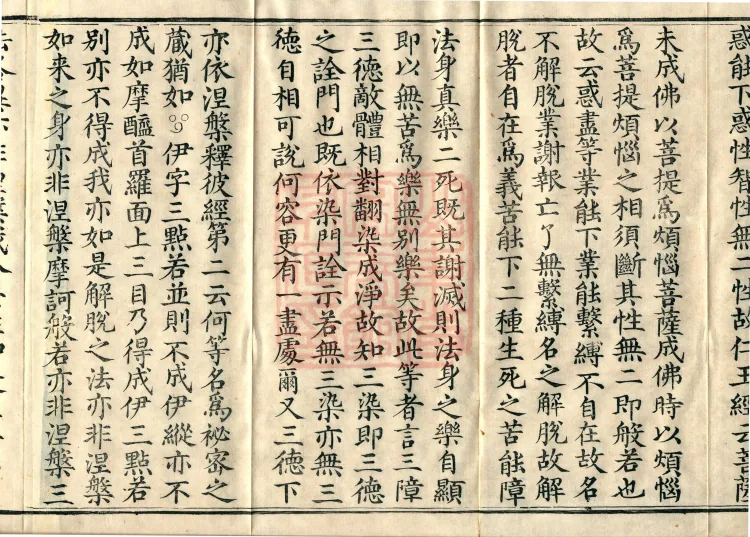 惑能下惑性智性無二性故仁王經云菩薩
未成佛以菩提爲煩惱菩薩成佛時以煩惱
爲菩提煩惱之相須斷其性無二即般若也
故云惑盡等業能下業能繫縛不自在故名
不解脫業謝報亡了無繫縛名之解脫故解
脫者自在爲義苦能下二種生死之苦能障
法身真樂二死既其謝滅則法身之樂自顯
即以無苦爲樂無別樂矣故此等者言三障
三德敵體相對翻染成淨故知三染即三德
之詮門也既依染門詮示若無三染亦無三
德自相可說何容更有一盡處爾又三德下
亦依涅槃釋彼經第二云何等名爲祕密之
藏猶如伊字三點若並則不成伊縱亦不
成如摩醯首羅面上三目乃得成伊三點若
別亦不得成我亦如是解脫之法亦非涅槃
如来之身亦非涅槃摩訶般若亦非涅槃三